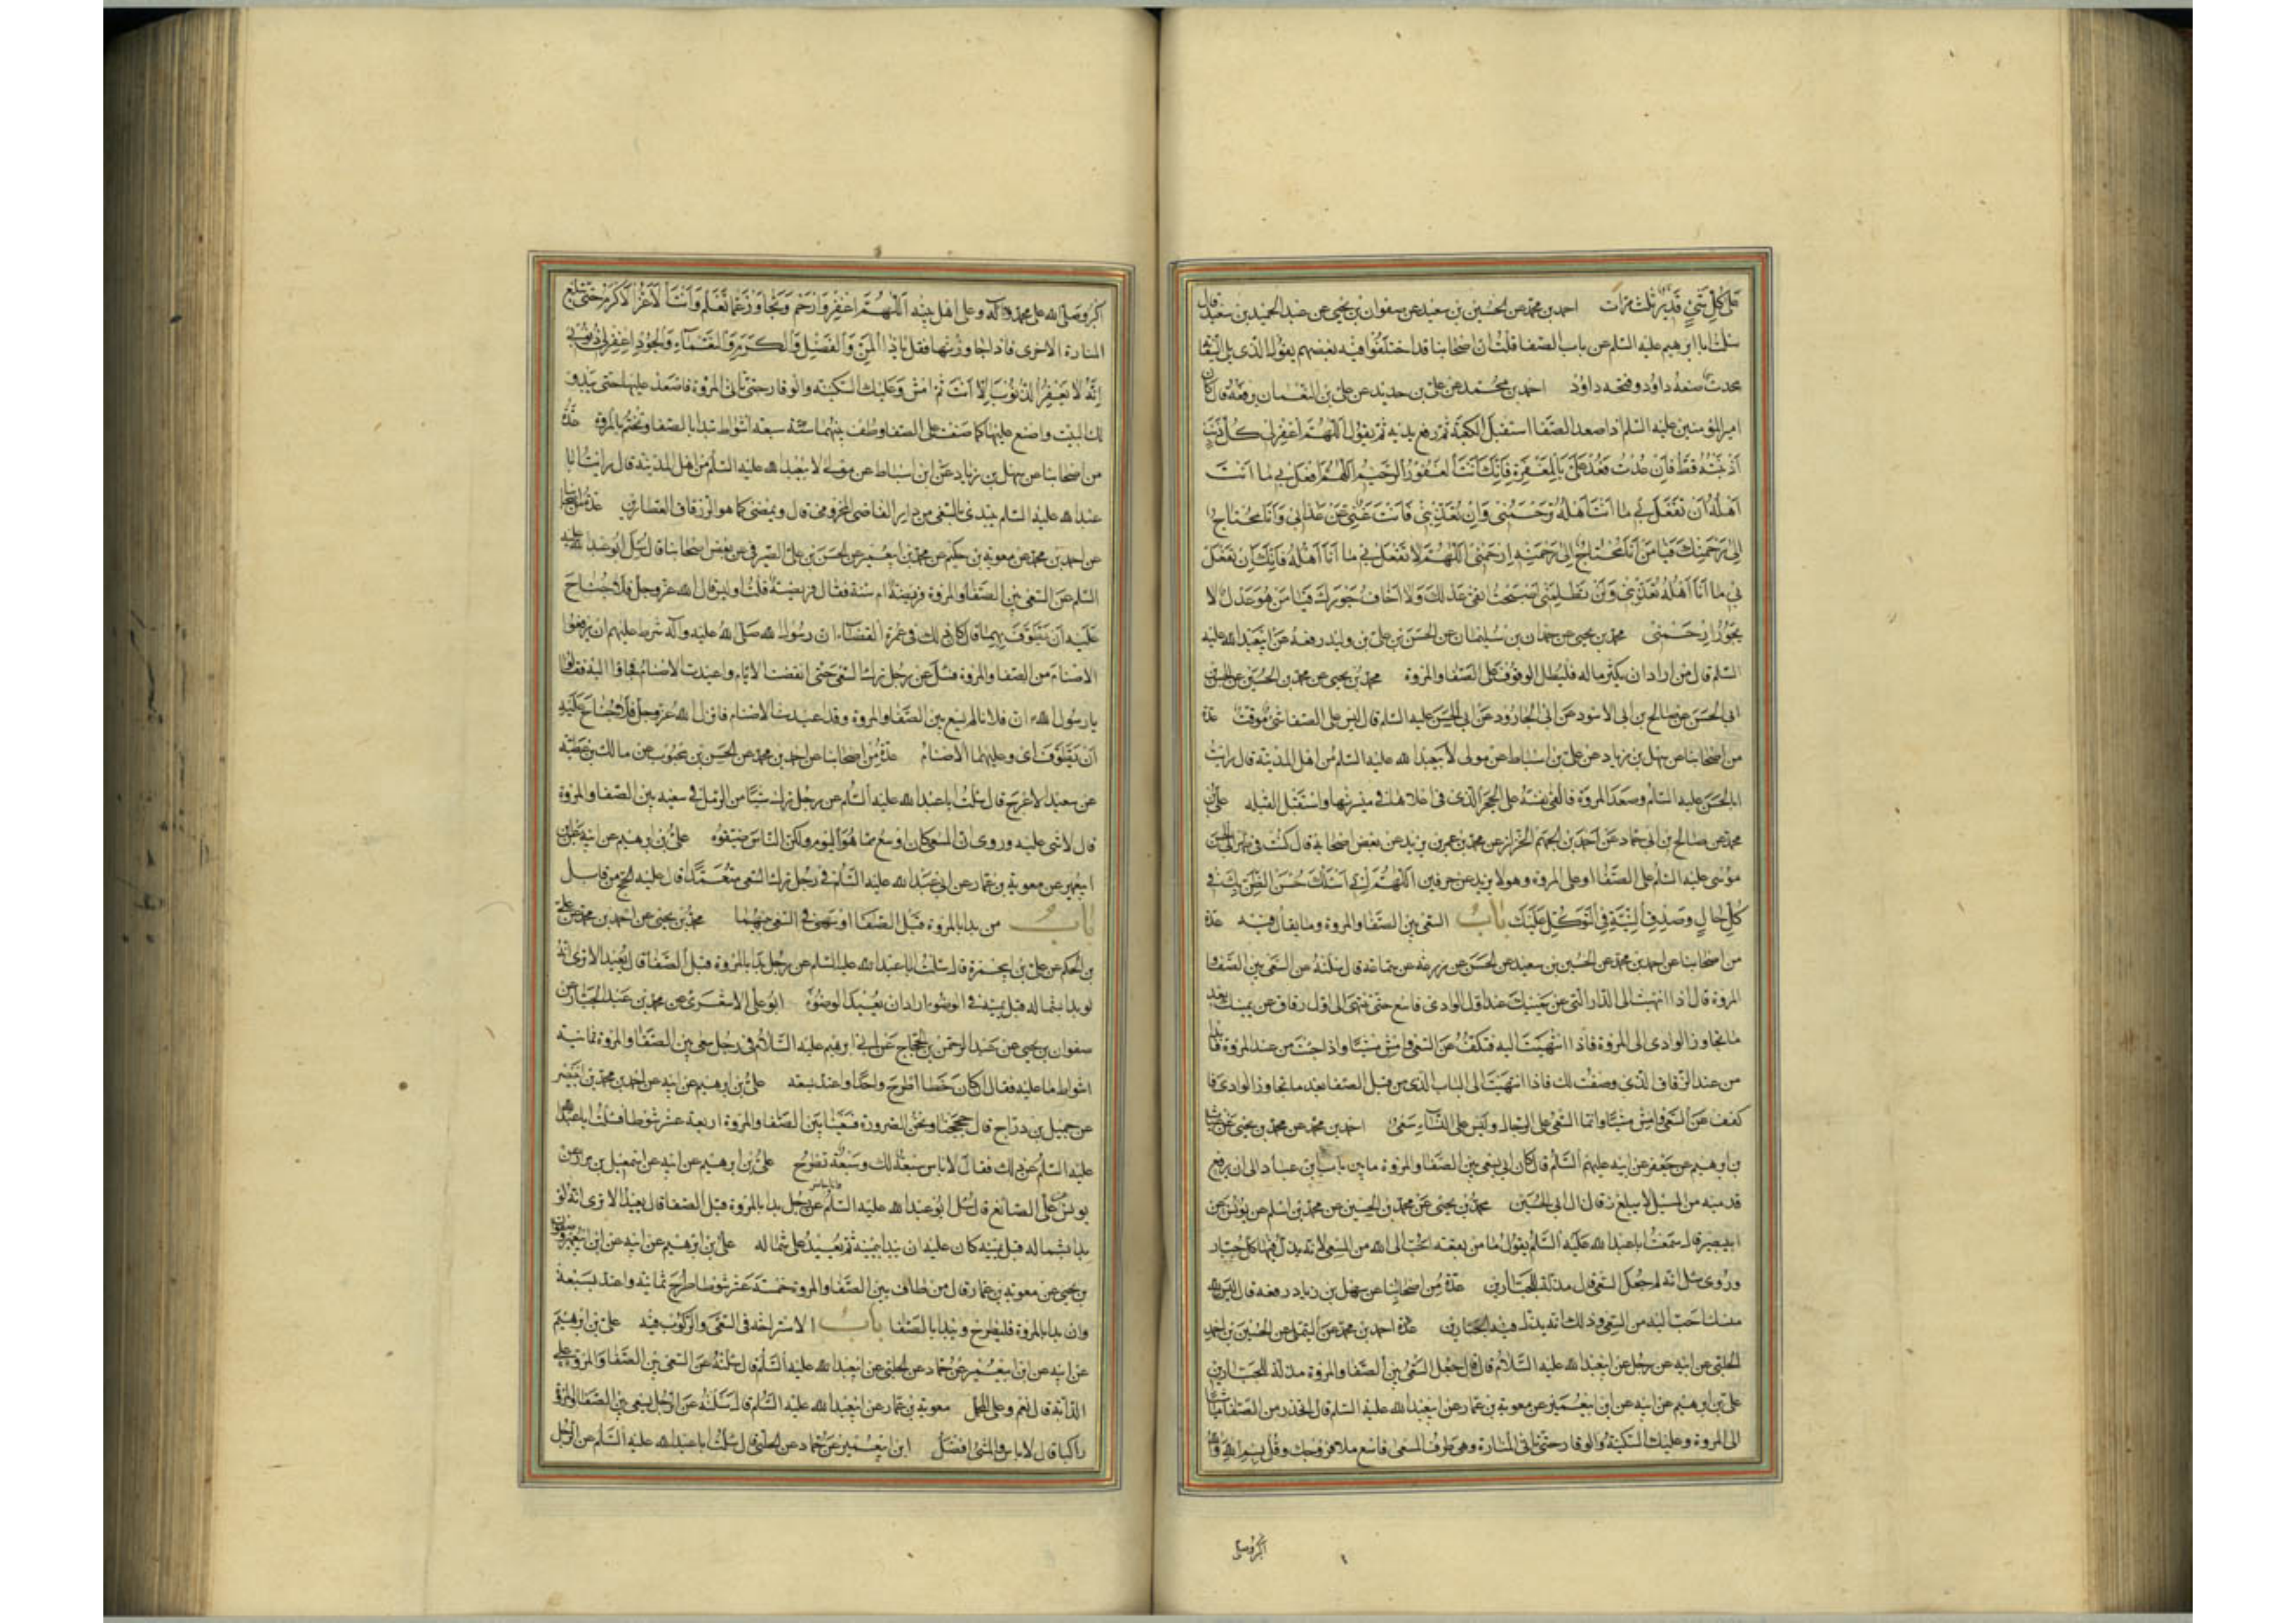 عَلَى كُلِّ شَيْءٍ قَدِيرٌ ثلث مرات احمد بن محمد عن الحسين بن سعيد عن صفوان بن يحيى عن عبد الحميد بن سعيد قال
سئلت ابا ابرهيم عليه السلم عن باب الصفا قلت ان اصحابنا قد اختلفوا فيه بعضهم يقول الذى يلى السقاية
محدث صنعه داود وفتحه داود احمد بن محمد عن على بن حديد عن على بن النعمان يرفعه قال كان
امير المؤمنين عليه السلم اذا صعد الصفا استقبل الكعبة ثم رفع يديه ثم يقول اللهم اغفر لى كل ذنب
اذنبته قط فان عدت فعد على بالمغفرة فانك انت الغفور الرحيم اللهم افعل بى ما انت
اهله ان تفعل بى ما انت اهله ترحمنى وان تعذبنى فانت غنى عن عذابى وانا محتاج
الى رحمتك فيا من انا محتاج الى رحمته ارحمنى اللهم لا تفعل بى ما انا اهله فانك ان تفعل
بى ما انا اهله تعذبنى ولن تظلمنى اصبحت اتقى عدلك ولا اخاف جورك فيا من هو عدل لا
يجور ارحمنى محمد بن يحيى عن حمدان بن سليمان عن الحسن بن على بن وليد رفعه عن ابيعبد الله عليه
السلم قال من اراد ان يكثر ماله فليطل الوقوف على الصفا والمروة محمد بن يحيى عن محمد بن الحسين عن
ابى الحسن عن صالح بن ابى الاسود عن ابى الجارود عن ابى عليه السلم قال ليس على الصفا شئ موقت عدة
من اصحابنا عن سهل بن زياد عن على بن اسباط عن مولى لابيعبد الله عليه السلم من اهل المدينة قال رايت
ابا الحسن عليه السلم وصعد المروة فالقى نفسه على الحجر الذى فى اعلاها فى ميسرتها واستقبل القبله على بن
محمد عن صالح بن ابى حماد عن احمد بن الجهم الخزاز عن محمد بن عمر بن يزيد عن بعض اصحابه قال كنت فى
موسى عليه السلم على الصفا او على المروة وهو لا يزيد عن حرفين اللهم انى اسئلك حسن الظن بك فى
كل حال وصدق النية فى التوكل عليك باب السعى بين الصفا والمروة وما يقال فيه عدة
من اصحابنا عن احمد بن محمد عن الحسين بن سعيد عن الحسن عن زرعة عن سماعه قال سئلته عن السعى بين الصفا و
المروة قال اذا انتهيت الى الدار التى عن يمينك عند اول الوادى فاسع حتى تنتهى الى اول زقاق عن يمينك بعد
ما تجاوز الوادى الى المروة فاذا انتهيت اليه فكف عن السعى وامش مشيا واذا جئت من عند المروة فابدا
من عند الزقاق الذى وصفت لك فاذا انتهيت الى الباب الذى من قبل الصفا بعد ما تجاوز الوادى فا
كفف عن السعى وامش مشيا وانما السعى على الرجال وليس على النساء سعى احمد بن محمد عن محمد بن يحيى عن غياث
بن ابرهيم عن جعفر عن ابيه عليهم السلم قال كان ابى يسعى بين الصفا والمروة ما بين باب ابن عباد الى ان يرفع
قدميه من المسيل لا يبلغ زقاق ال ابى الحسين محمد بن يحيى عن محمد بن الحسين عن محمد بن اسلم عن يونس عن
ابيبصير قال سمعت ابا عبد الله عليه السلم يقول ما من بقعة احب الى الله من المسعى لانه يذل فيها كل جبار
وروى سئل انه لم جعل السعى قال مذلة للجبارين عدة من اصحابنا عن سهل بن زياد رفعه قال ليس لله
منسك احب اليه من السعى وذلك انه يذل فيه الجبارين عدة احمد بن محمد عن التيملى عن الحسين بن احمد
الحلبى عن ابيه عن رجل عن ابيعبد الله عليه السلام قال قال جعل السعى بين الصفا والمروة مذلة للجبارين
على بن ابرهيم عن ابيه عن ابن ابيعمير عن معوية بن عمار عن ابيعبد الله عليه السلم قال انحدر من الصفا ماشيا
الى المروة وعليك السكينة والوقار حتى تاتى المنارة وهى طرف المسعى فاسع ملا فروجك وقل بسم الله والله
اكبر وصلى
اكبر وصلى الله على محمد واله وعلى اهل بيته اللهم اغفر وارحم وتجاوز عما تعلم وانت الاعز الاكرم حتى تبلغ
المنارة الاخرى فاذا جاوزتها فقل ياذا المن والفضل والكرم والنعماء والجود اغفر لى ذنوبى
انه لا يغفر الذنوب الا انت ثم امش وعليك السكينه والوقار حتى تاتى المروة فاصعد عليها حتى يبدو
لك البيت واصنع عليها كما صنعت على الصفا وطف بينهما سبعة اشواط تبدا بالصفا وتختم بالمروة عدة
من اصحابنا عن سهل بن زياد عن ابن اسباط عن مولى لابيعبد الله عليه السلم من اهل المدينة قال رايت ابا
عبد الله عليه السلم يبتدئ بالسعى من دار القاضى المخزومى قال ويمضى كما هو الى زقاق العطارين عدة من اصحابنا
عن احمد بن محمد عن معوية بن حكيم عن محمد بن ابيعمير عن الحسن بن على الصيرفى عن بعض اصحابنا قال سئل ابو عبد الله عليه
السلم عن السعى بين الصفا والمروة فريضة ام سنة فقال فريضة قلت اوليس قال الله عز وجل فلا جناح
عليه ان يطوف بهما قال كان ذلك فى عمرة القضاء ان رسول الله صلى الله عليه واله شرط عليهم ان يرفعوا
الاصنام من الصفا والمروة فسئل عن رجل ترك السعى حتى انقضت الايام واعيدت الاصنام فجاوا اليه فقالوا
يا رسول الله ان فلانا لم يسع بين الصفا والمروة وقد اعيدت الاصنام فانزل الله عز وجل فلا جناح عليه
ان يطوف اى وعليهما الاصنام عدة من اصحابنا عن احمد بن محمد عن الحسن بن محبوب عن مالك بن عطية
عن سعيد الاعرج قال سئلت ابا عبد الله عليه السلم عن رجل ترك شيئا من الرمل فى سعيه بين الصفا والمروة
قال لا شى عليه وروى ان المسعى كان اوسع مما هو اليوم ولكن الناس ضيقوه على بن ابرهيم عن ابيه عن ابن
ابيعمير عن معوية بن عمار عن ابى عبد الله عليه السلم فى رجل ترك السعى متعمدا قال عليه الحج من قابل
باب من بدا بالمروة قبل الصفا او سهى فى السعى بينهما محمد بن يحيى عن احمد بن محمد عن على
بن الحكم عن على بن ابيحمزة قال سئلت ابا عبد الله عليه السلم عن رجل بدا بالمروة قبل الصفا قال يعيد الا ترى انه
لو بدا بشماله قبل يمينه فى الوضوء اراد ان يعيد الوضوء ابو على الاشعرى عن محمد بن عبد الجبار عن
صفوان بن يحيى عن عبد الرحمن بن الحجاج عن ابى ابرهيم عليه السلام فى رجل سعى بين الصفا والمروة ثمانية
اشواط ما عليه فقال ان كان خطا اطرح واحدا واعتد بسبعة على بن ابرهيم عن ابيه عن احمد بن محمد بن ابينصر
عن جميل بن دراج قال حججنا ونحن صرورة فسعينا بين الصفا والمروة اربعة عشر شوطا فسئلت ابا عبد الله
عليه السلم عن ذلك فقال لا باس سبعة لك وسبعة تطرح على بن ابرهيم عن ابيه عن اسمعيل بن مرار عن
يونس عن على الصائغ قال سئل ابو عبد الله عليه السلم وانا حاضر عن رجل بدا بالمروة قبل الصفا قال يعيد الا ترى انه لو
بدا بشماله قبل يمينه كان عليه ان يبدا بيمينه ثم يعيد على شماله على بن ابرهيم عن ابيه عن ابن ابيعمير وصفوان
بن يحيى عن معوية بن عمار قال من طاف بين الصفا والمروة خمسة عشر شوطا طرح ثمانية واعتد بسبعة
وان بدا بالمروة فليطرح ويبدا بالصفا باب الاستراحة فى السعى والركوب فيه على بن ابرهيم
عن ابيه عن ابن ابيعمير عن حماد عن الحلبى عن ابيعبد الله عليه السلم قال سئلته عن السعى بين الصفا والمروة على
الدابة قال نعم وعلى المحمل معوية بن عمار عن ابيعبد الله عليه السلم قال سئلته عن الرجل يسعى بين الصفا والمروة
راكبا قال لا باس والمشى افضل ابن ابيعمير عن حماد عن الحلبى قال سئلت ابا عبد الله عليه السلم عن الرجل